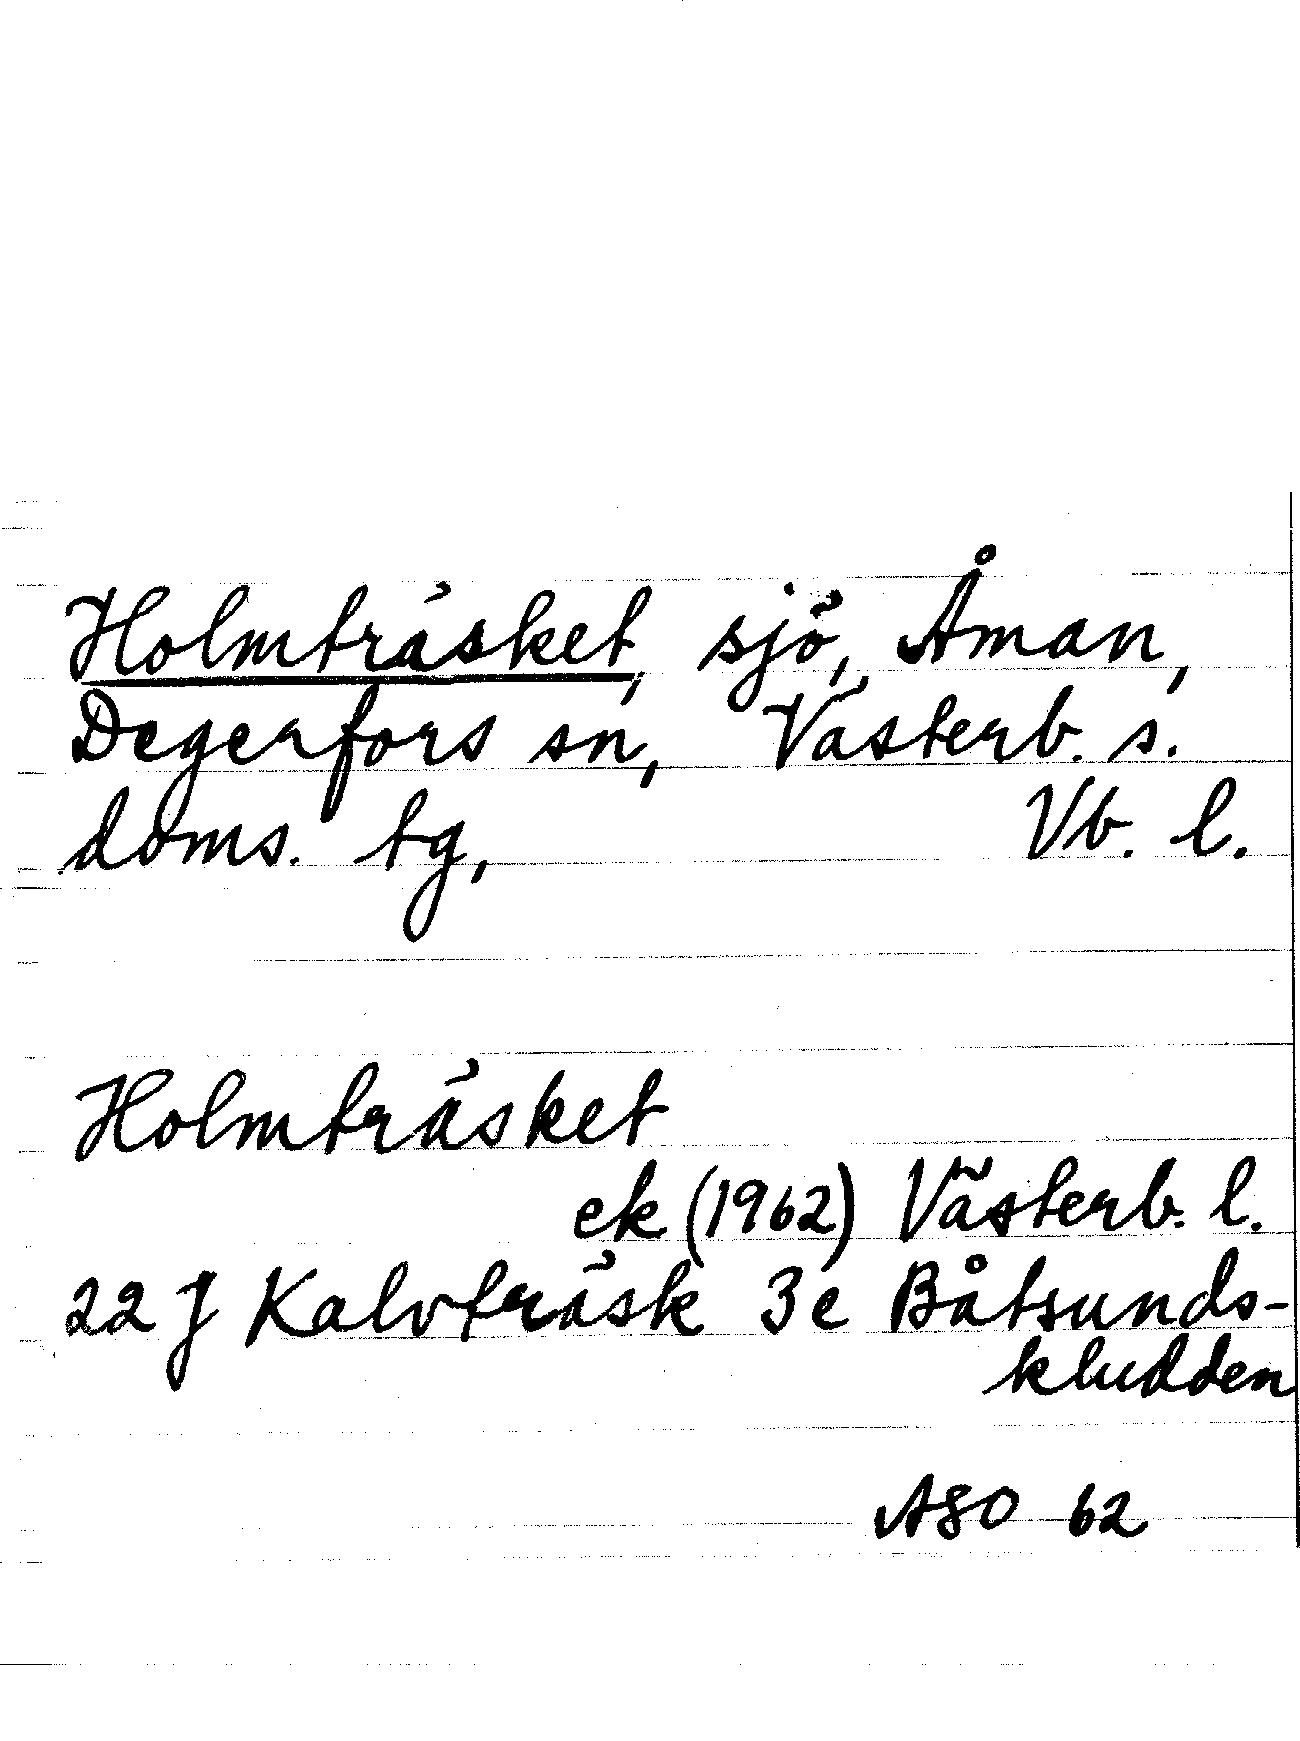 Holmträsket, sjö, Åman,
Degerfors sn, Västerb. s.
doms. tg, Vb. l.
Holmträsket
ek (1962) Västerb. l.
22 J Kalvträsk 3e Båtsunds-
kludden
ASO 62